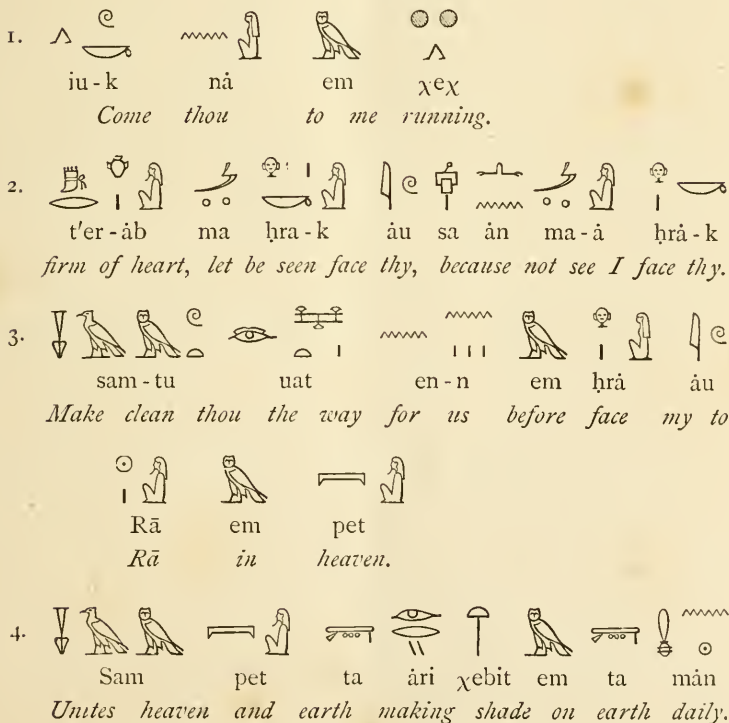 1.
iu - k nȧ em χeχ
Come thou to me running.
2.
t'er - ȧb ma ḥra - k ȧu sa ȧn ma - ȧ ḥrȧ - k
firm of heart, let be seen face thy, because not see I face thy.
3.
sam - tu uat en - n em ḥrȧ ȧu
Make clean thou the way for us before face my to
Rā em pet
Rā in heaven.
4.
Sam pet ta ȧri χebit em ta mȧn
Unites heaven and earth making shade on earth daily.